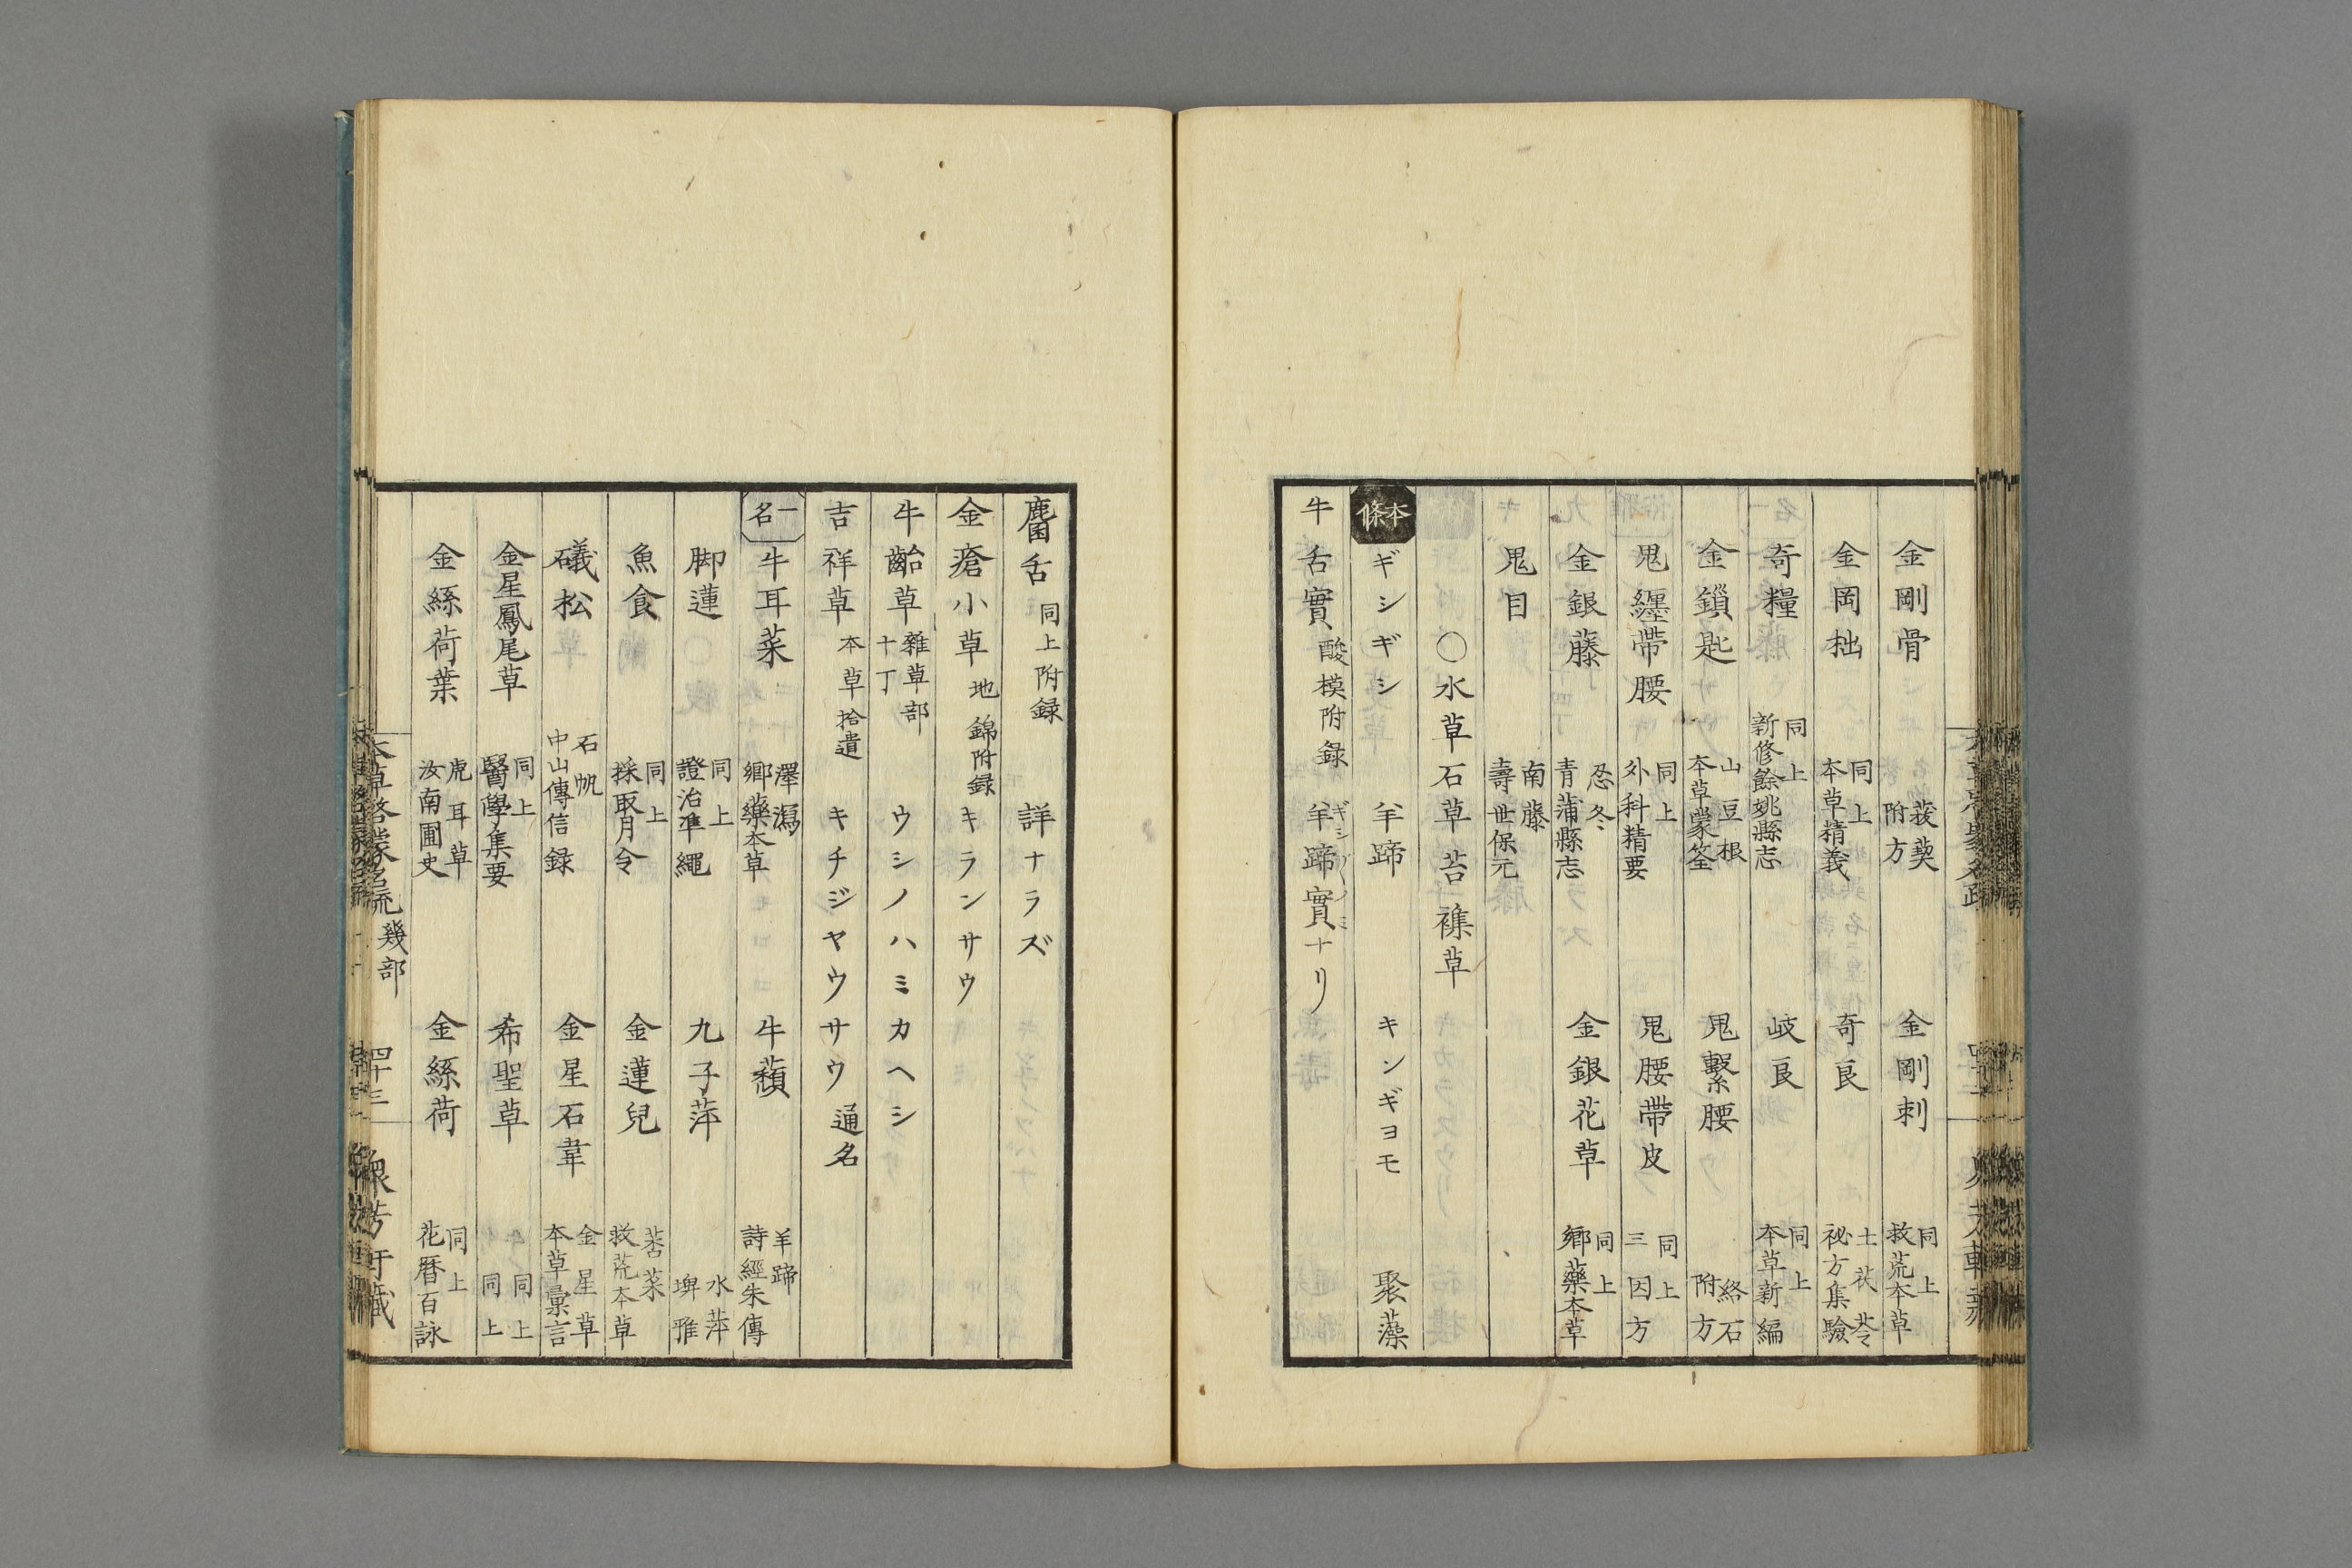 金剛骨 菝葜附方 金剛刺 同上救荒本草
金岡拙 同上本草精義 奇良 土茯苓祕方集驗
奇糧 同上新修餘姚縣志 岐良 同上本草新編
金鎖匙 山豆根本草蒙筌 鬼繫腰 絡石附方
鬼纏帶腰 同上外科精要 鬼腰帶皮 同上三因方
金銀藤 忍冬青蒲縣志 金銀花草 同上鄉藥本草
鬼目 南藤壽世保元
〇水草 石草 苔 襍草
本條 ギシギシ 羊蹄 キンギヨモ 聚藻
牛舌實 酸模附録 羊蹄實ナリ
麕舌 同上附録 詳ナラズ
金瘡小草 地錦附録 キランサウ
牛齝草 雜草部十丁 ウシノハミカヘシ
吉祥草 本草拾遺 キチジヤウサウ 通名
一名 牛耳菜 澤瀉鄉藥本草 牛蘈 羊蹄詩經朱傳
脚蓮 同上證治準繩 九子萍 水萍埤雅
魚食 同上採取月令 金蓮兒 莕菜救荒本草
礒松 石帆中山傳信録 金星石韋 金星草本草彙言
金星鳳尾草 同上醫學集要 希聖草 同上同上
金絲荷葉 虎耳草汝南圃史 金絲荷 同上花曆百詠
本草啓蒙名疏 幾部 四十三 衆芳軒藏